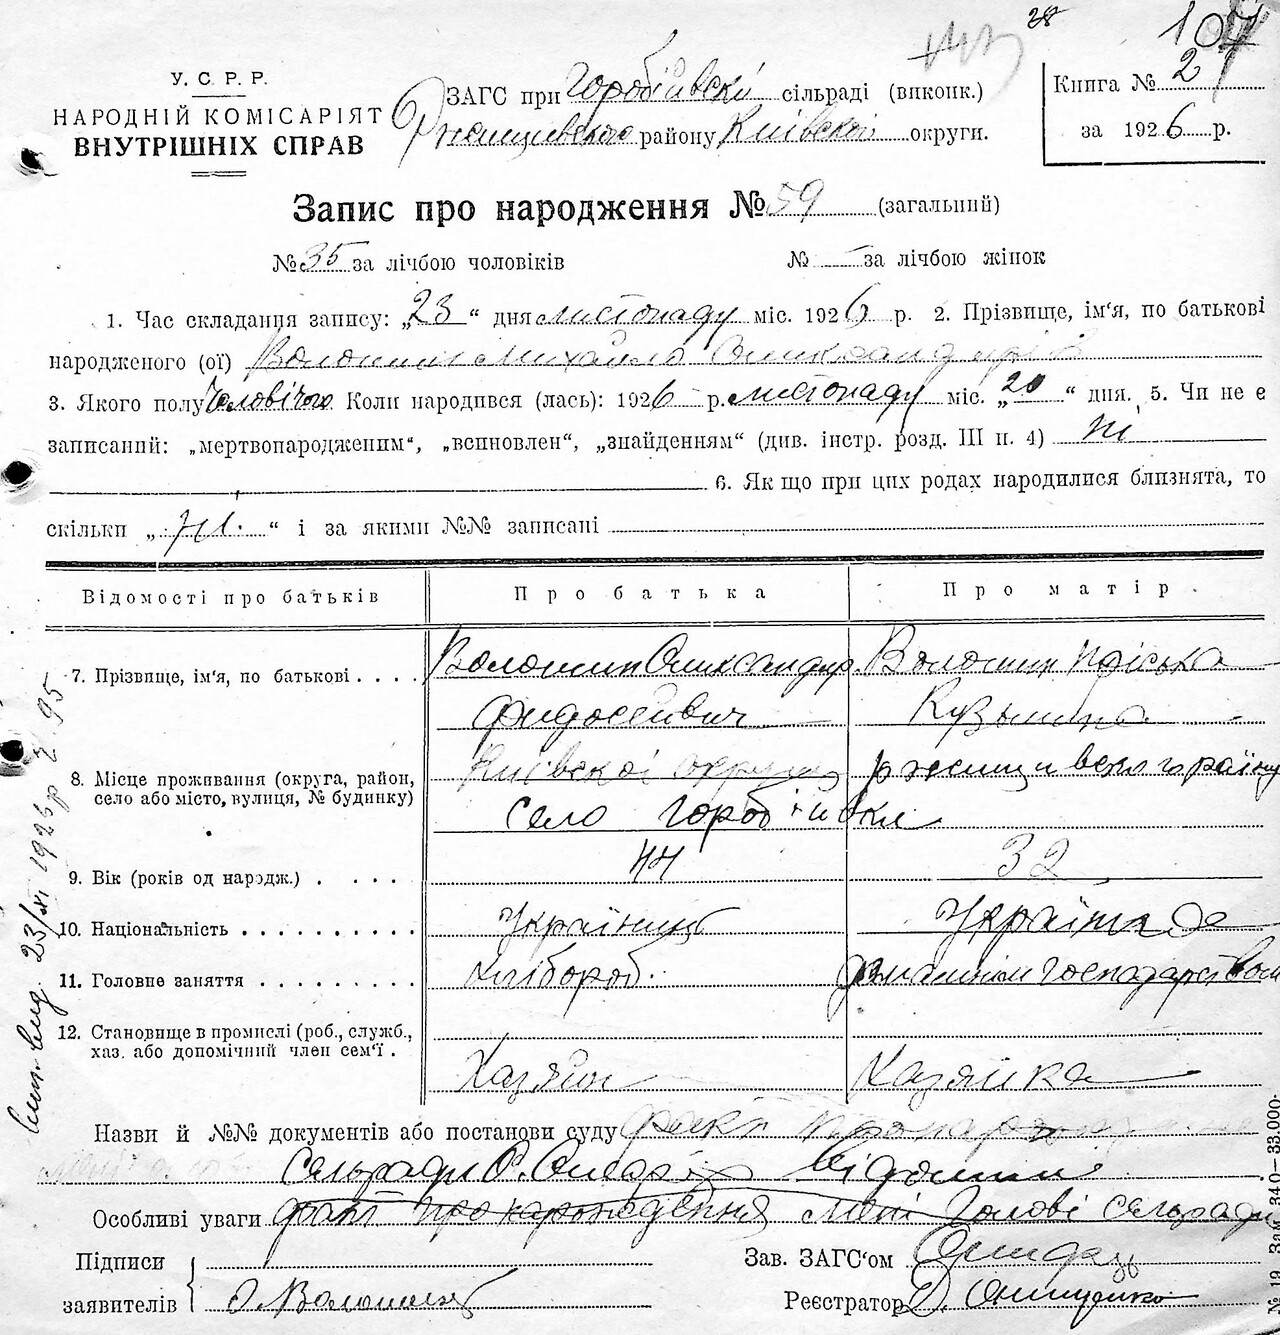 28
107
У. С. Р. Р.
НАРОДНІЙ КОМІСАРІЯТ
ВНУТРІШНІХ СПРАВ
ЗАГС при Горобіївскі сільраді (виконк.)
Ржищевського району Київскоі округи.
Книга № 2
за 1926 р.
Запис про народження № 59 (загальний)
№ 35 за лічбою чоловіків № — за лічбою жінок
1. Час складання запису: „23“ дня листопаду міс. 1926 р. 2. Прізвище, ім'я, по батькові
народженого (ої) Волошин Михайло
3. Якого полу Чоловічого Коли народився (лась): 1926 р. листопаду міс. „20“ дня. 5. Чи не є
записаний: „мертвонародженим“, „всиновлен“, „знайденням“ (див. інстр. розд. III п. 4) ні
6. Як що при цих родах народилися близнята, то
скільки „ні.“ і за якими №№ записані
Відомості про батьків Про батька Про матір.
7. Прізвище, ім'я, по батькові . . . . Волошин Оликсандир Волошин
Фидосеівич Кузьмина
8. Місце проживання (округа, район, Київскоі округи ржищивського раіну
село або місто, вулиця, № будинку) село Горобіивки
9. Вік (років од народж.) . . . . 44 32
10. Національність . . . . . . . . . . Українець Українка
11. Головне заняття . . . . . . . . . Хлібороб. господарством
12. Становище в промислі (роб., служб.,
хаз. або допомічний член сем'ї . Хазяін Хазяйка
Назви й №№ документів або постанови суду факт
сельради
Особливі уваги факт про народження мені Голові сельради
Підписи
заявителів О. Волошин
Зав. ЗАГС'ом
Реєстратор Д. Онищенко
23/XI 1926 р № 95
№ 19. Зам. 340—33.000.